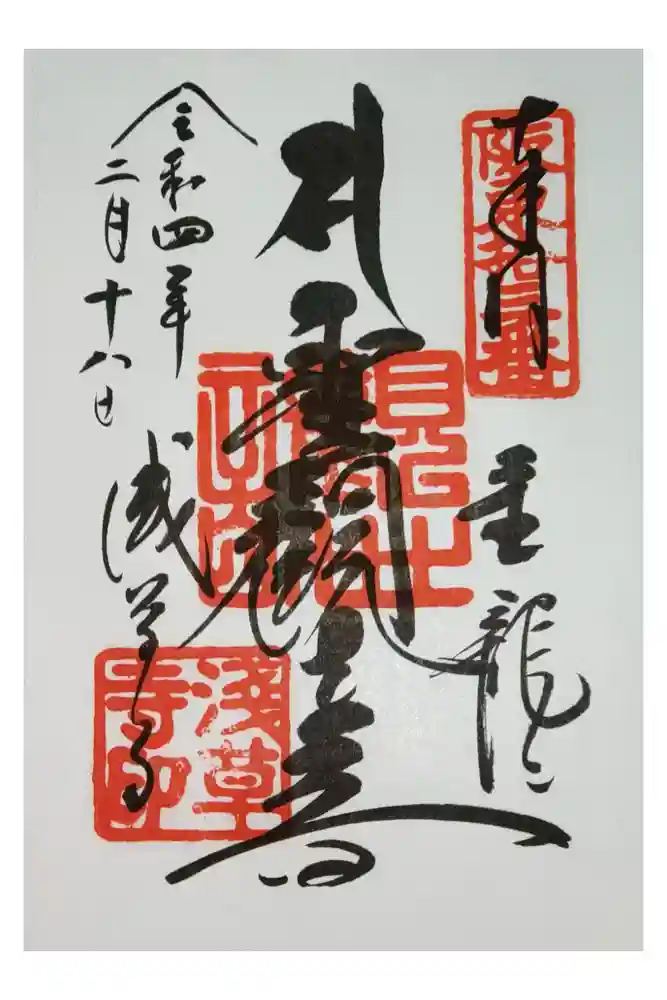 奉拝
坂東拾三番
金龍山
聖観世音
令和四年
二月十八日
浅草寺
淺草寺印